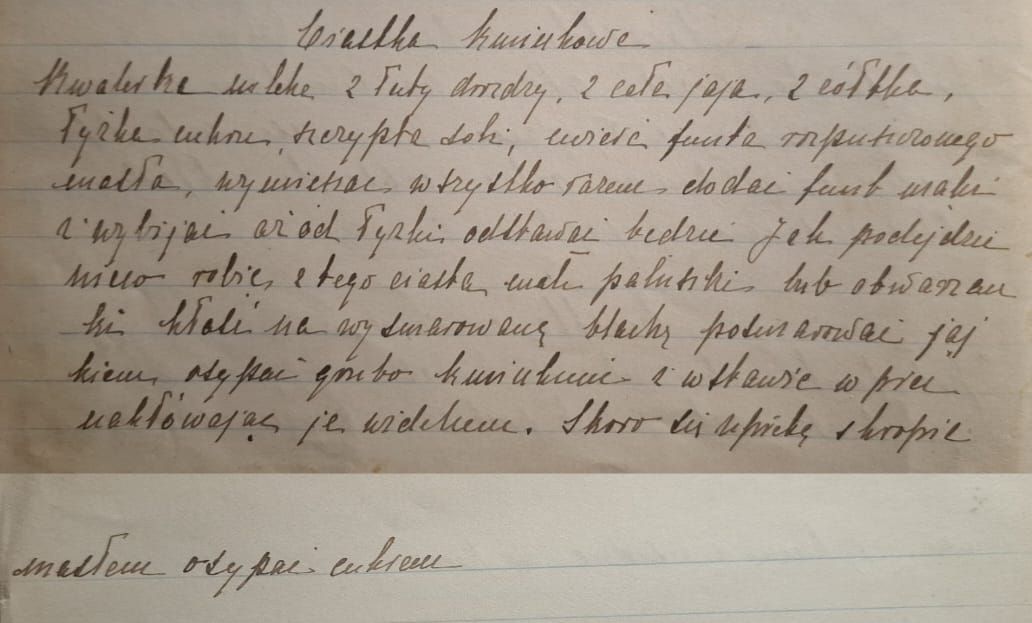 Ciastka kminkowe
Kwaterka mleka 2 łuty drożdży, 2 całe jaja, 2 żółtka,
łyżka cukru, szczypta soli, ćwierć funta rozpuszczonego
masła, wymieszać wszystko razem dodać funt mąki
i wybijać aż od łyżki odstawać będzie Jak podejdzie
nieco robić z tego ciasta małe paluszki lub obwarzan
ki kłaść na wysmarowaną blachę posmarować jaj
kiem, osypać grubo kminkiem i wstawić w piec
nakłówając je widelcem. Skoro się upieką skropić
masłem osypać cukrem